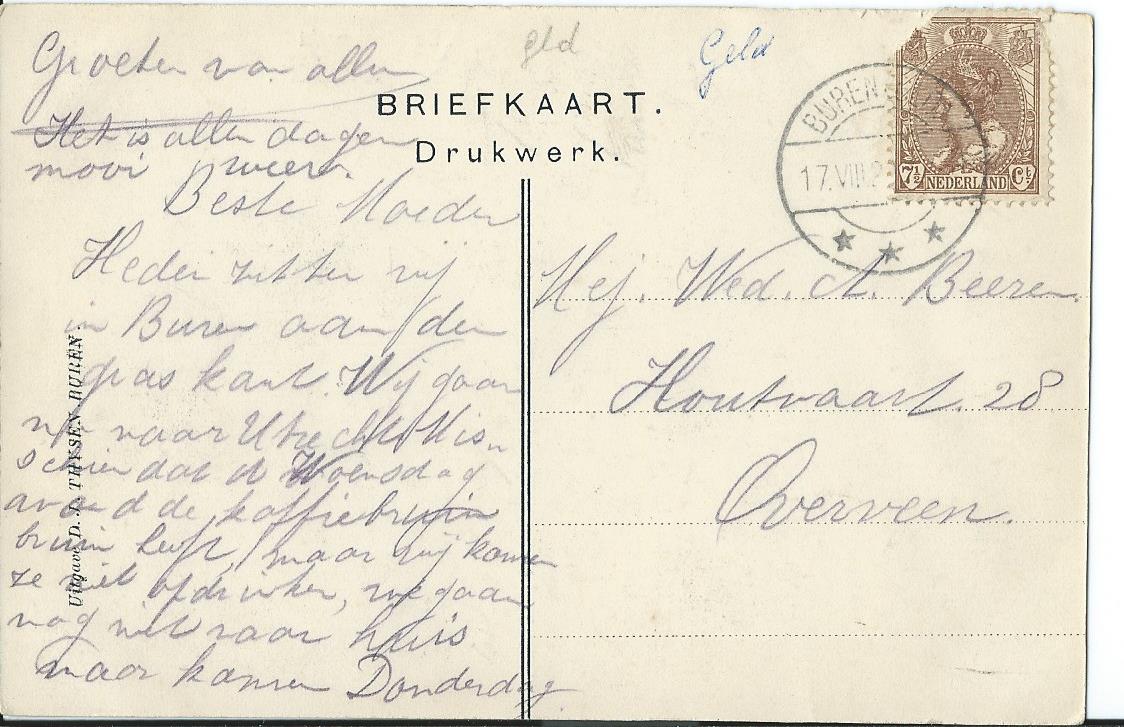 Groeten van allen
Het is allen dagen
mooi weer.
Beste Moeder
Heden zitten wij
in Buren aan den
gras kant. Wij gaan
nu naar Utrecht Mis-
schien dat de Woensdag
avond de koffiebruin
bruin heeft, maar wij komen
ze niet opdrinken, we gaan
nog niet naar huis
maar komen Donderdag
Uitgave D. J. THYSEN, BUREN.
gld
Geld
BRIEFKAART.
Drukwerk.
BUREN
17.VIII.2
7½ NEDERLAND Ct
Mej. Wed. A. Beeren
Houtvaart. 28
Overveen.